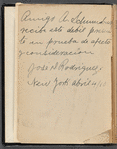 Amigo A.
recibe este debil presen
te en prueba de afecto
y consideracion
Jose N Rodriguez
New York abril